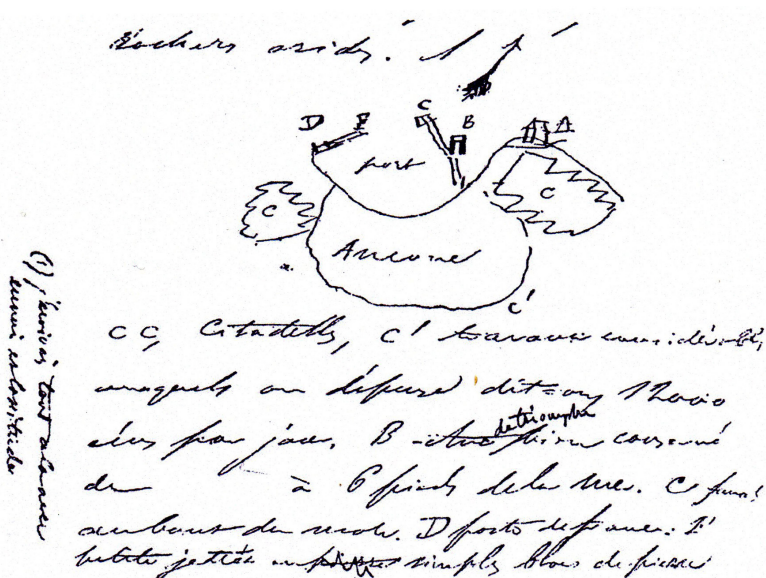 Rochers arides.
A A
C
B
D E
port
C
C
Ancone
C'
CC, Citadelles, C' travaux considérables,
auxquels on dépense dit-on, 12000
écus par jour. B Arc de triomphe bien conservé
de à 6 pieds de la mer. C
au bout du mole. D porte de france. E
petite jettée en simples blocs de pierre
(1) j'écrivis tout